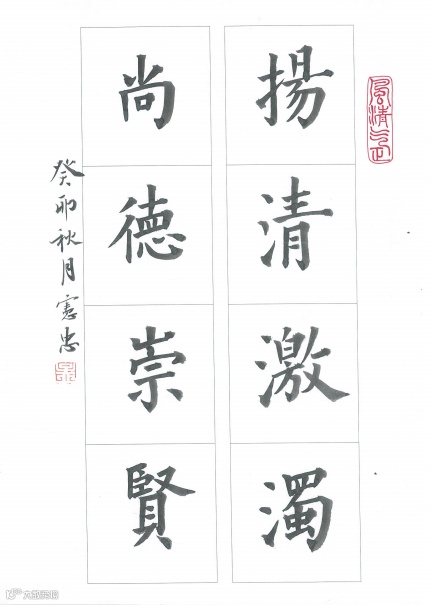 風清氣正
揚清激濁
尚德崇賢
癸卯秋月憲忠